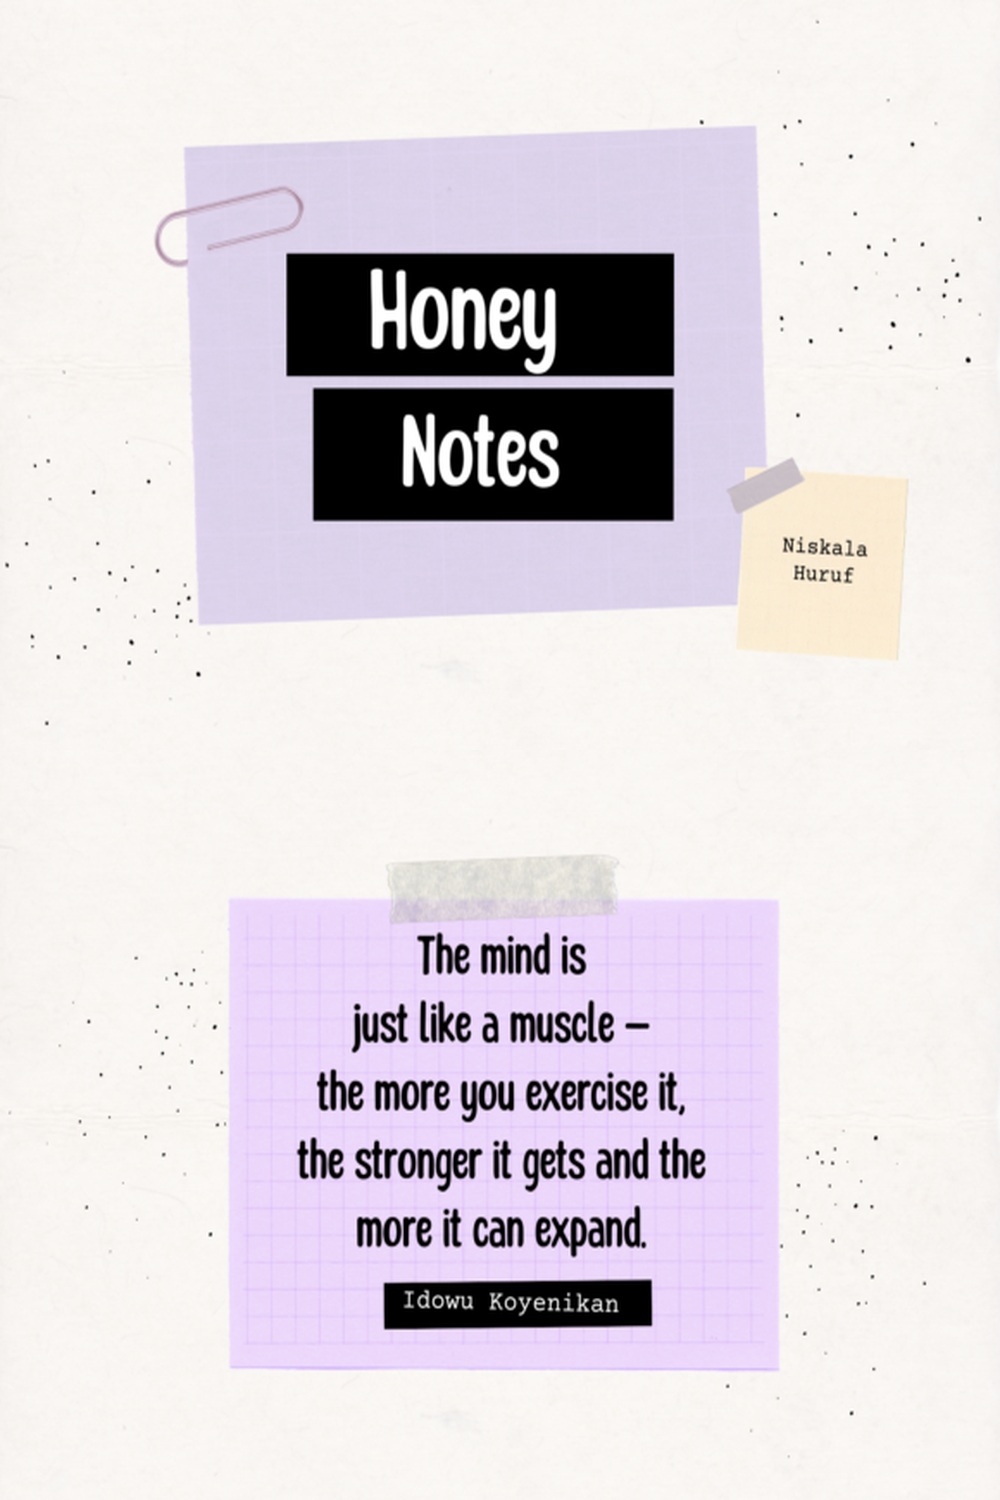 Honey
Notes
Niskala
Huruf
The mind is
just like a muscle –
the more you exercise it,
the stronger it gets and the
more it can expand.
Idowu Koyenikan